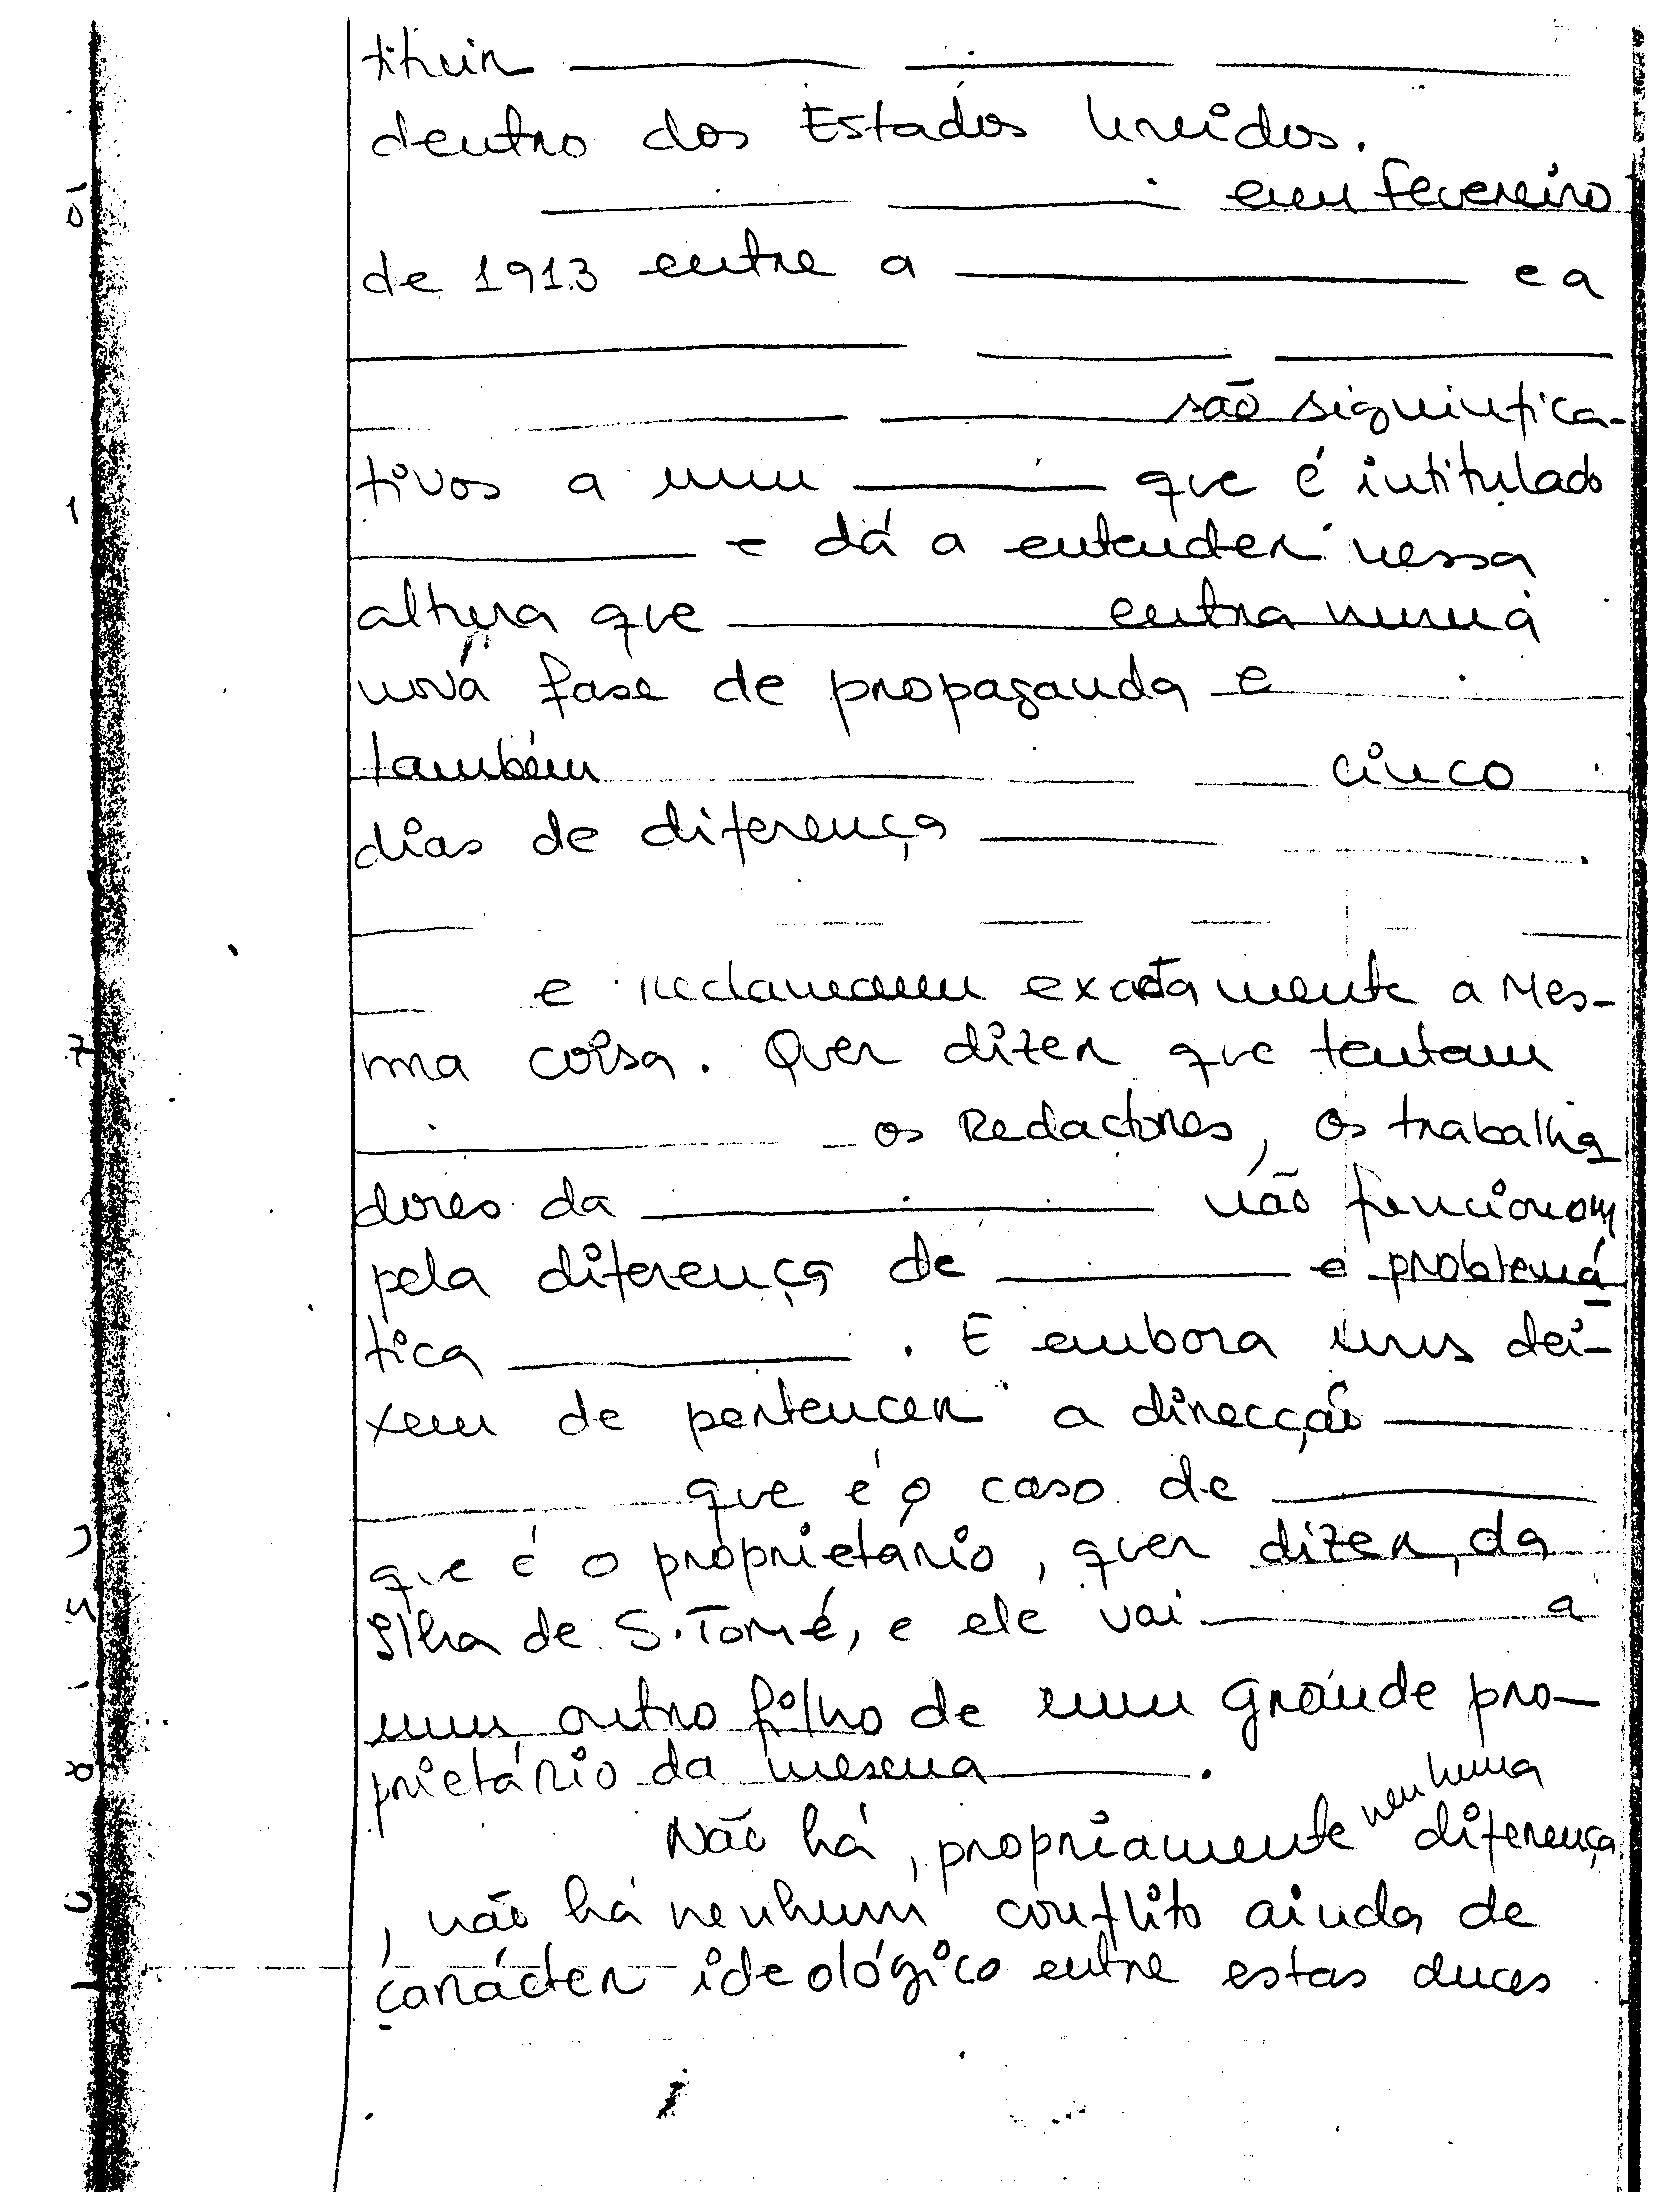 tituir
dentro dos Estados Unidos.
em fevereiro
de 1913 entre a e a
são signifíca-
tivos a um que é intitulado
e dá a entender nessa
altura que entra numa
nova fase de propaganda e
também cinco
dias de diferença
e reclamam exactamente a mes-
ma coisa. Quer dizer que tentam
os Redactores, os trabalha
dores da não funcionam
pela diferença de e problemá
tica . E embora uns dei-
xem de pertencer a direcção
que é o caso de
que é o proprietário, quer dizer, da
Ilha de S. Tomé, e ele vai a
um outro filho de um grande pro-
prietário da mesma .
Não há, propriamente nenhuma diferença
, não há nenhum conflito ainda de
carácter ideológico entre estas duas